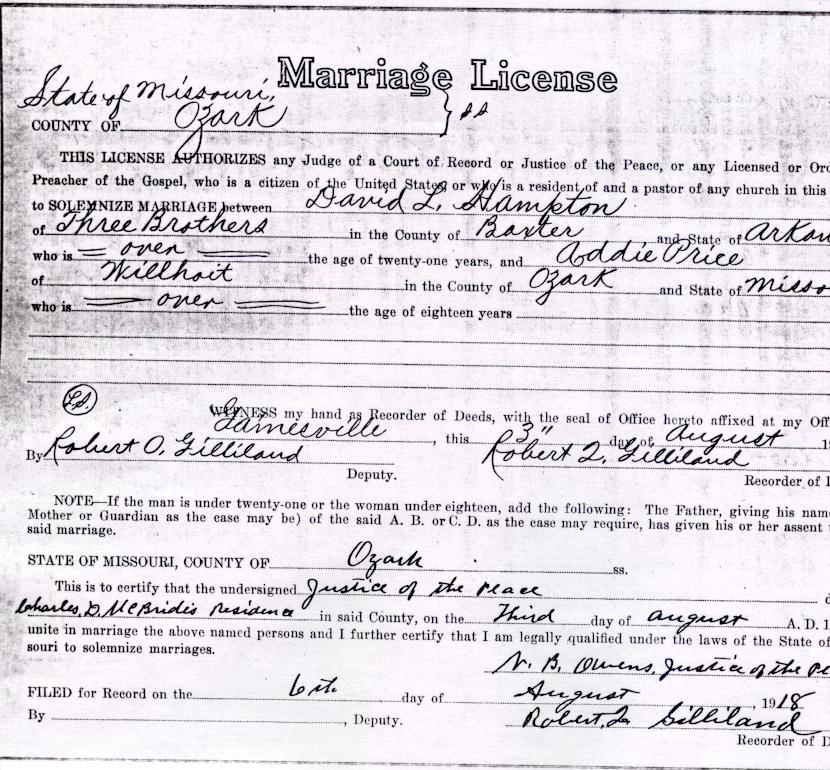 Marriage License
State of Missouri,
COUNTY OF Ozark } ss
THIS LICENSE AUTHORIZES any Judge of a Court of Record or Justice of the Peace, or any Licensed or Ord
Preacher of the Gospel, who is a citizen of the United States or who is a resident of and a pastor of any church in this
to SOLEMNIZE MARRIAGE between David L. Hampton
of Three Brothers in the County of Baxter and State of Arkan
who is over the age of twenty-one years, and Addie Price
of Willhoit in the County of Ozark and State of Misso
who is over the age of eighteen years
L.S.
WITNESS my hand as Recorder of Deeds, with the seal of Office hereto affixed at my Off
Gainesville, this 3" day of August 1
By Robert O. Gilliland Robert Q. Gilliland
Deputy. Recorder of D
NOTE—If the man is under twenty-one or the woman under eighteen, add the following: The Father, giving his name
Mother or Guardian as the case may be) of the said A. B. or C. D. as the case may require, has given his or her assent t
said marriage.
STATE OF MISSOURI, COUNTY OF Ozark ss.
This is to certify that the undersigned Justice of the Peace d
Charles, D. McBride's Residence in said County, on the Third day of august A. D. 1
unite in marriage the above named persons and I further certify that I am legally qualified under the laws of the State of
souri to solemnize marriages.
B. Owens, Justice of the Pe
FILED for Record on the 6th day of August, 1918
By , Deputy. Robert Gilliland
Recorder of D